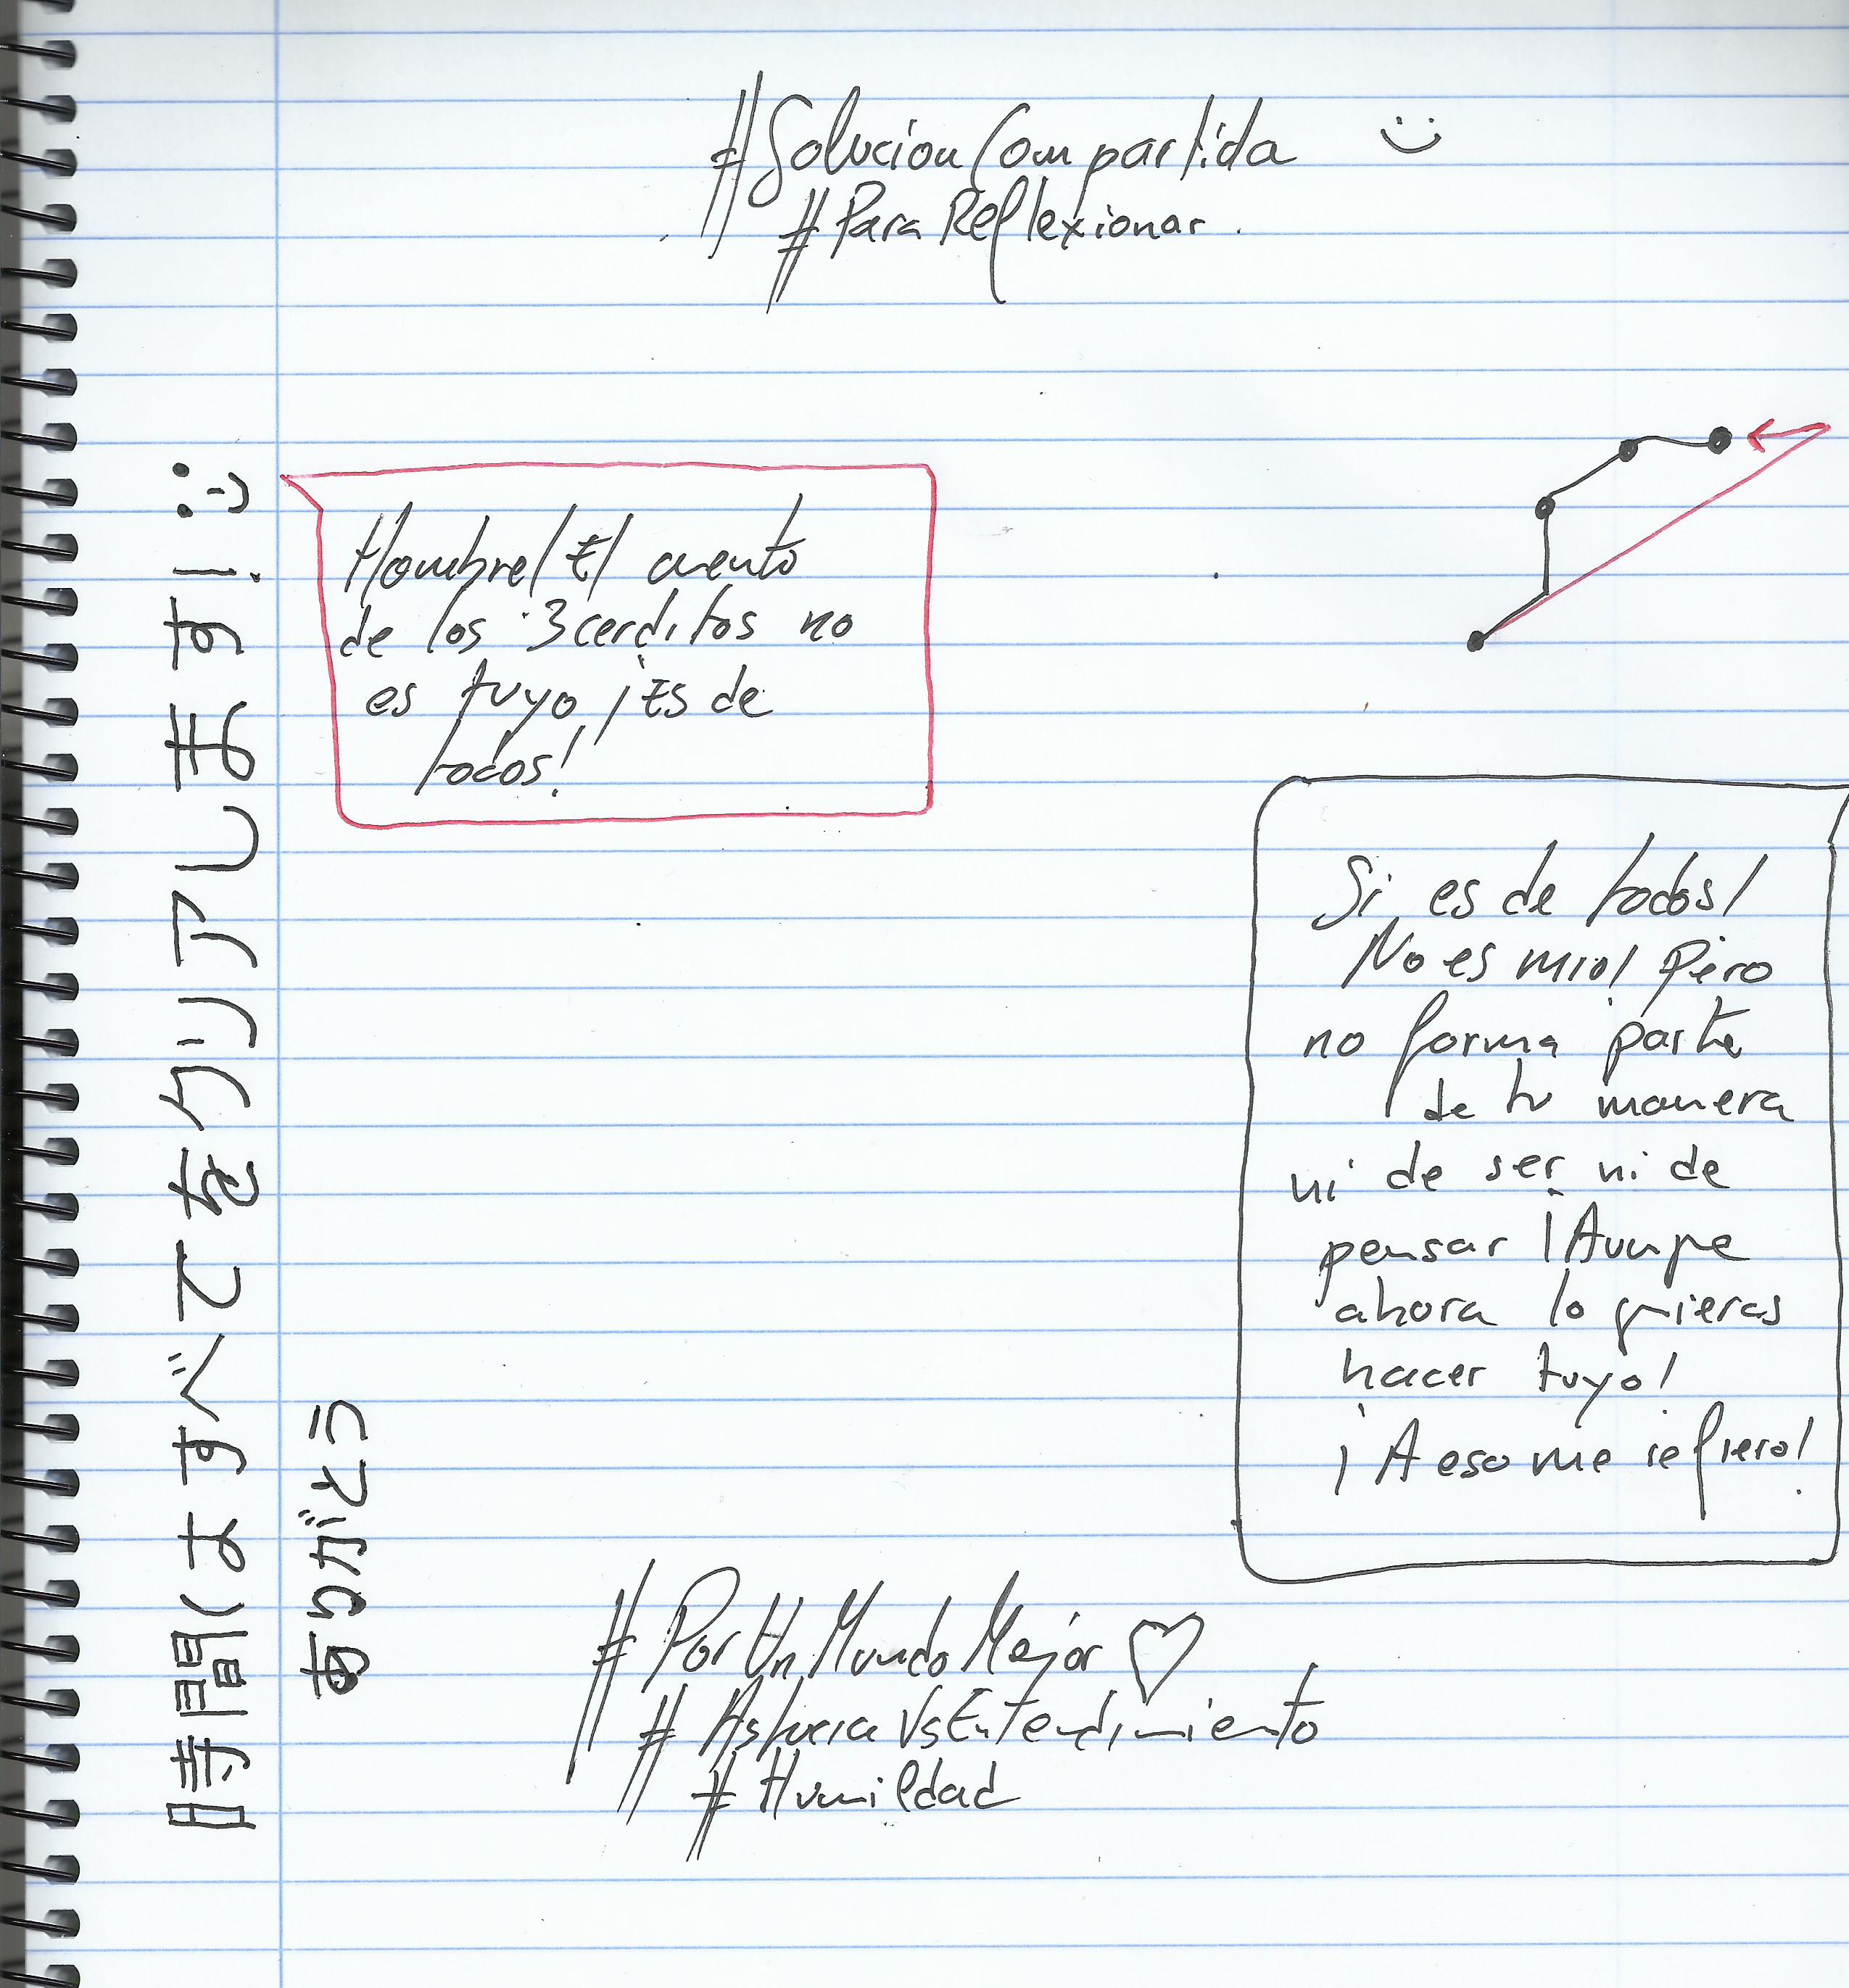 #SolucionCompartida :)
#ParaReflexionar.
Hombre! El cuento
de los 3 cerditos no
es tuyo, ¡Es de
todos!
Si, es de todos!
No es mio! Pero
no forma parte
de tu manera
ni de ser ni de
pensar ¡Aunque
ahora lo quieras
hacer tuyo!
¡A eso me refiero!
時間はますべてをクリアします!:)
ありがとう
#PorUnMundoMejor ♡
#AstuciaVsEntendimiento
#Humildad